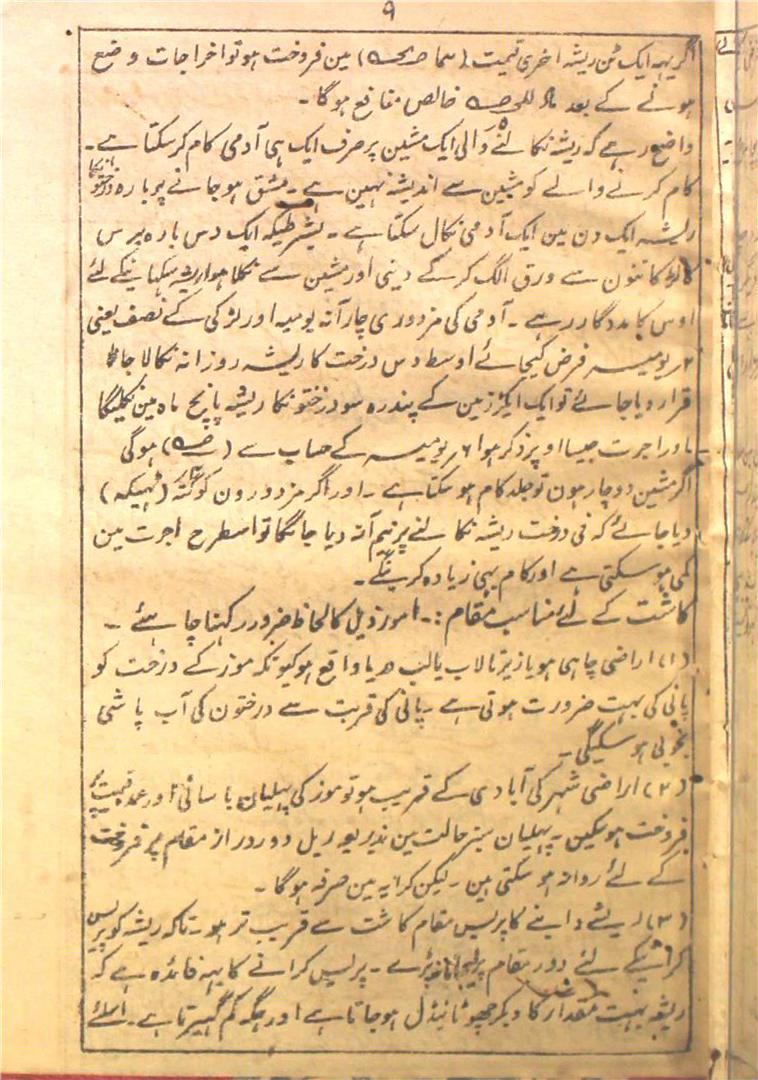 ۹
اگر یہہ ایک ٹن ریشہ اخری قیمت ( ) مین فروخت ہو تو اخراجات وضع
ہونے کے بعد خالص منافع ہوگا۔
واضع رہے کہ ریشہ نکالنے والی ایک مشین پر صرف ایک ہی آدمی کام کرسکتا ہے۔
کام کرنے والے کو مشین سے اندیشہ نہین ہے۔ مشق ہو جانے پر بارہ درختونکا
ریشہ ایک دن مین ایک آدمی نکال سکتا ہے۔ بشرطیکہ ایک دس بارہ برس
کا لڑکا تنون سے ورق الگ کرکے دینی اور مشین سے نکلا ہوا ریشہ سکہانیکے لئے
اوس کا مددگار رہے۔ آدمی کی مزدوری چار آنہ یومیہ اور لڑکی کے نصف یعنی
۲ر یومیہ فرض کیجائے اوسط دس درخت کا ریشہ روزانہ نکالا جانا
قرار دیا جائے تو ایک ایکڑ زمین کے پندرہ سو درختونکا ریشہ پانچ ماہ مین نکلیگا
اور اجرت جیسا اوپر ذکر ہوا ۶ر یومیہ کے حساب سے ( ) ہوگی
اگر مشین دو چار ہون تو جلد کام ہو سکتا ہے۔ اور اگر مزدورون کو گتہ (ٹہیکہ)
دیا جائے کہ فی درخت ریشہ نکالنے پر نیم آنہ دیا جائگا تو اسطرح اجرت مین
کمی ہو سکتی ہے اور کام بہی زیادہ کرینگے۔
کاشت کے لئے مناسب مقام :۔ امور ذیل کا لحاظ ضرور رکہنا چاہئے ۔
(۱) اراضی چاہی ہو یا زیر تالاب یا لب دریا واقع ہو کیونکہ موز کے درخت کو
پانی کی بہت ضرورت ہوتی ہے۔ پانی کی قربت سے درختون کی آب پاشی
بخوبی ہو سکیگی۔
(۲) اراضی شہر کی آبادی کے قریب ہو تو موز کی پہلیان باسانی اور عمدہ قیمت پر
فروخت ہو سکین۔ پہلیان سبز حالت مین بذریعہ ریل دور دراز مقام پر فروخت
کے لئے روانہ ہو سکتی ہین۔ لیکن کرایہ مین صرفہ ہوگا۔
(۳) ریشے دابنے کا پریس مقام کاشت سے قریب تر ہو۔ تاکہ ریشہ کو پریس
کرانیکے لئے دور مقام پر لیجانا نہ پڑے۔ پریس کرانے کا یہہ فائدہ ہے کہ
ریشہ بہت مقدار کا دبکر چھوٹا بنڈل ہو جاتا ہے اور جگہ کم گہیرتا ہے۔ اسلئے